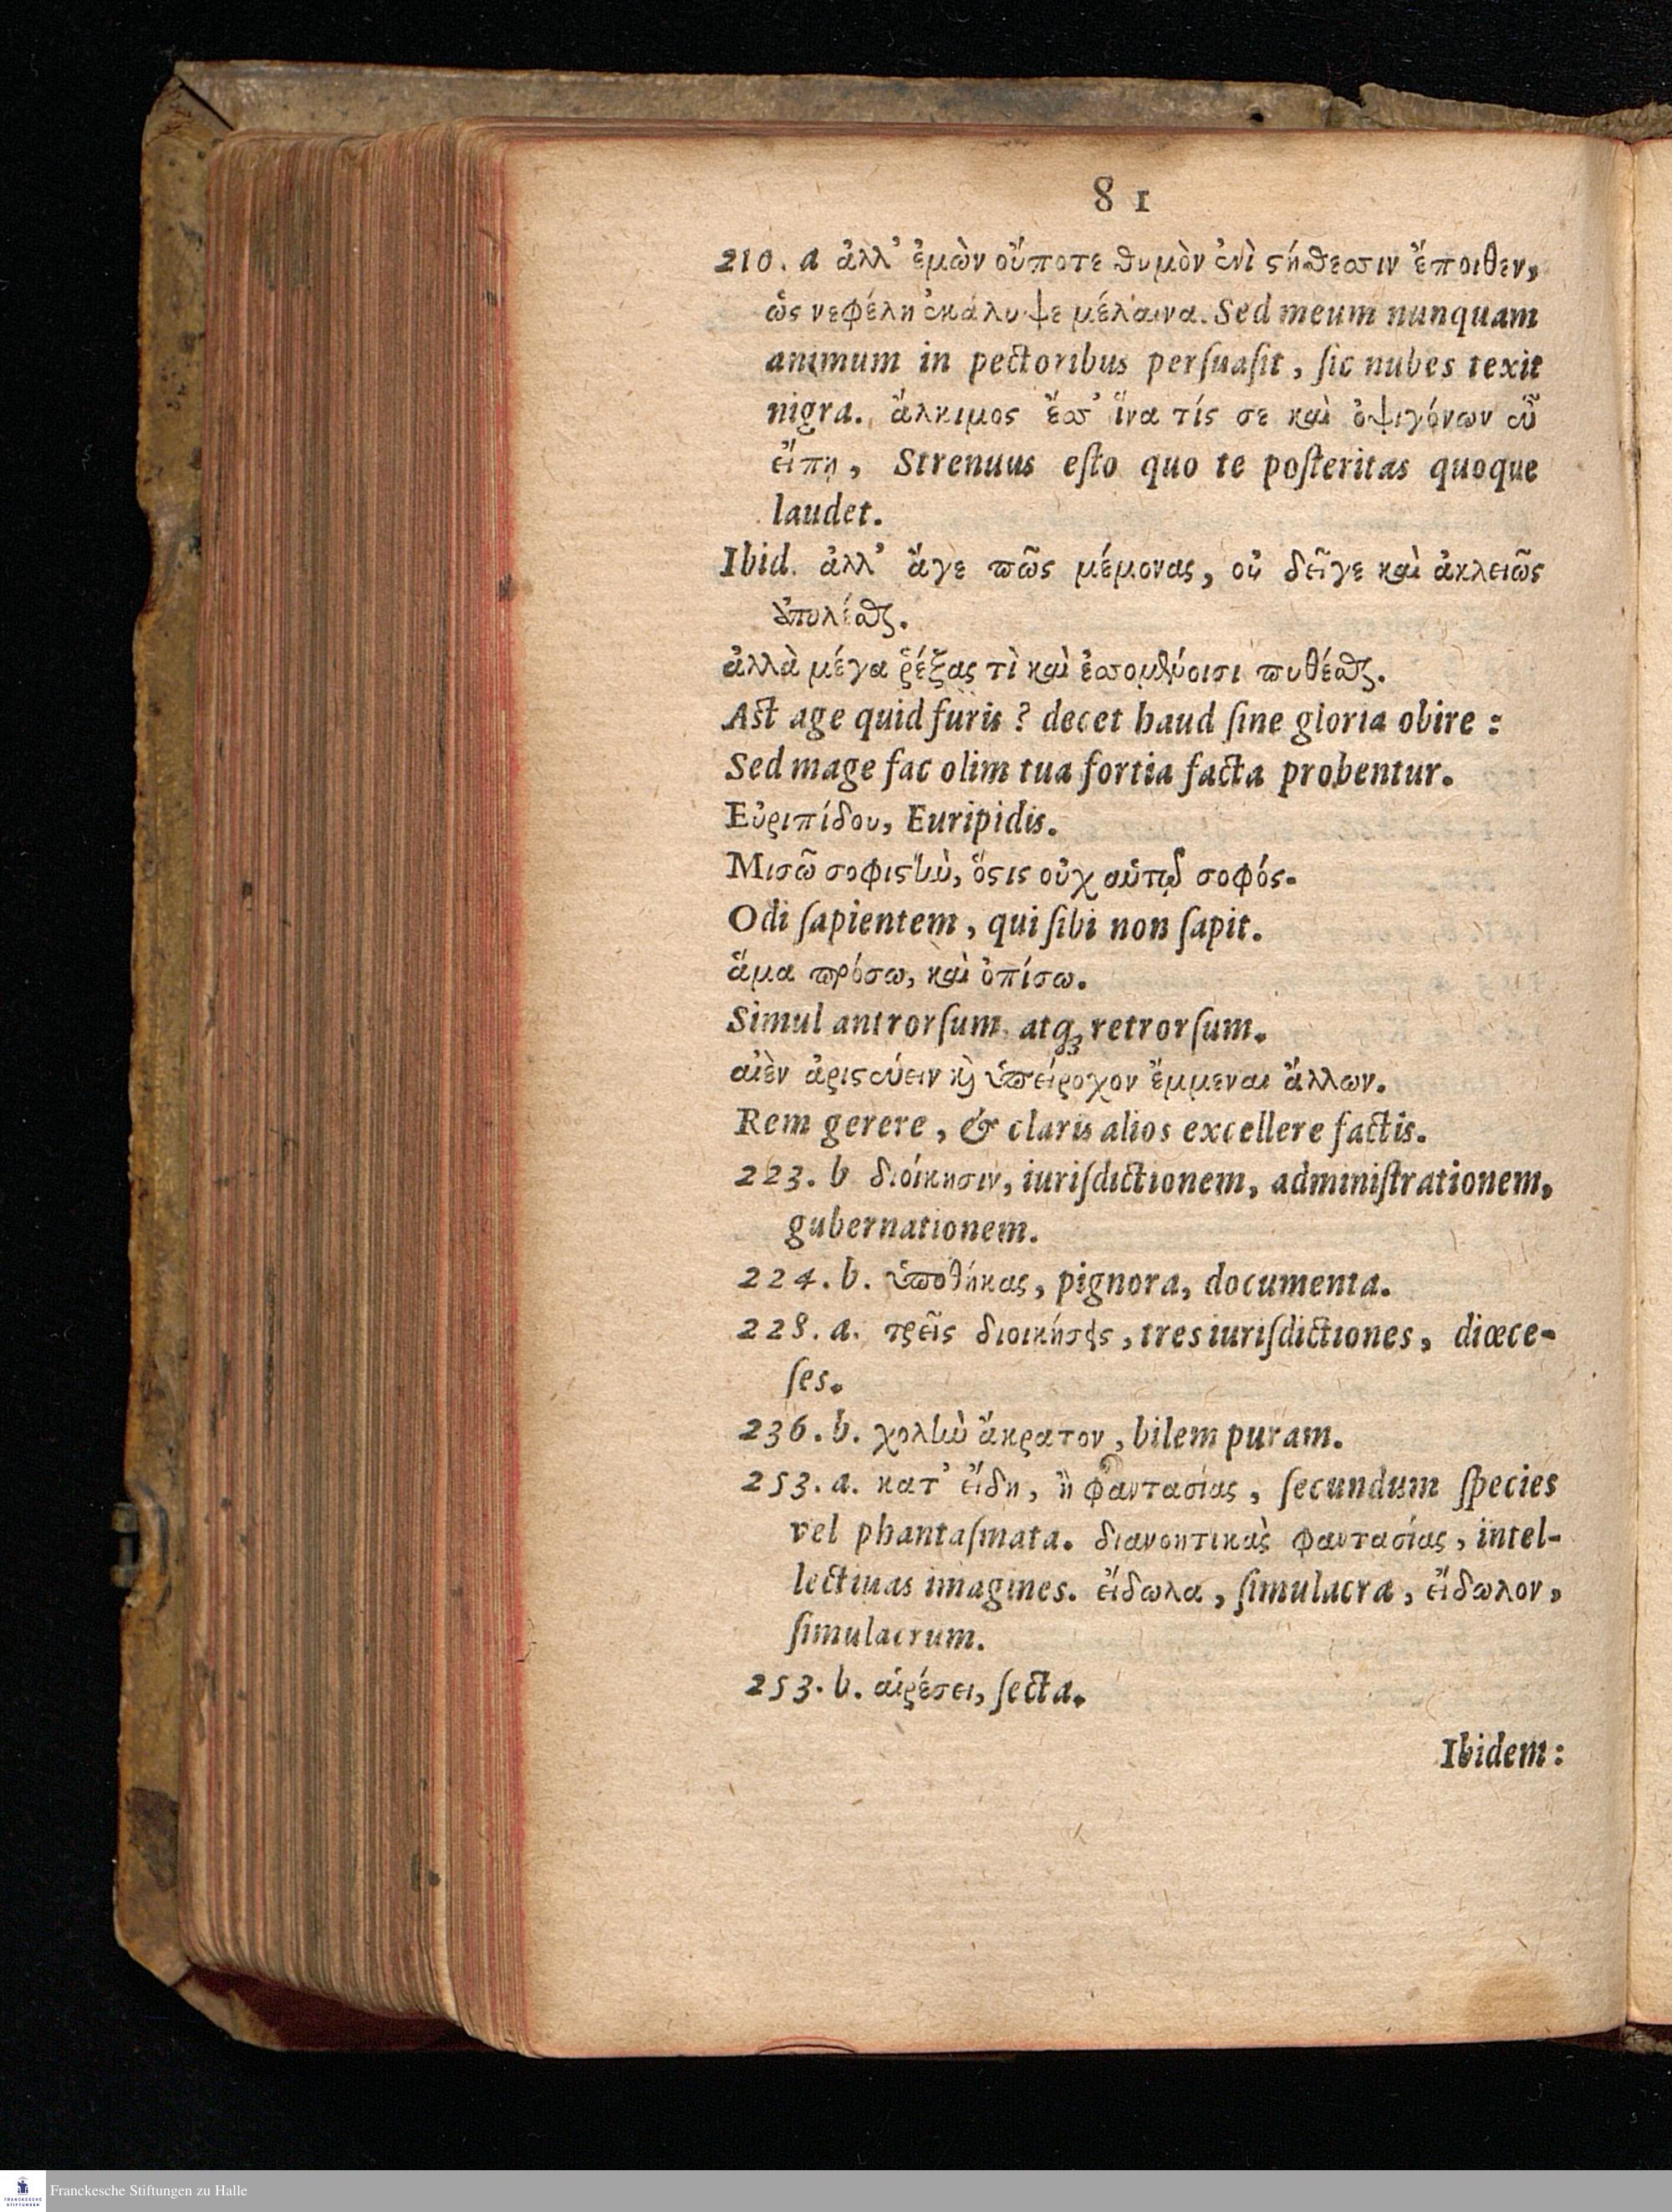 81
210. a ἀλλ' ἐμὼν οὔποτε θυμὸν ἐνὶ ϛήθεσσιν ἔποιθεν,
ὣς νεφέλη ἐκάλυψε μέλαινα. Sed meum nunquam
animum in pectoribus perſuaſit, ſic nubes texit
nigra. ἄλκιμος ἔσσ' ἵνα τίς σε καὶ ὀψιγόνων εὖ
εἴπῃ, Strenuus eſto quo te poſteritas quoque
laudet.
Ibid. ἀλλ' ἄγε πῶς μέμονας, οὐ δεῖγε καὶ ἀκλειῶς
ἀπολέσθαι.
ἀλλὰ μέγα ῥέξας τὶ καὶ ἐσσομένοισι πυθέσθαι.
Ast age quid furis? decet haud ſine gloria obire:
Sed mage fac olim tua fortia facta probentur.
Εὐριπίδου, Euripidis.
Μισῶ σοφιϛὴν, ὅϛις οὐχ αὑτῷ σοφός.
Odi ſapientem, qui ſibi non ſapit.
ἅμα πρόσω, καὶ ὀπίσω.
Simul antrorſum atqꝫ retrorſum.
αἰὲν ἀριϛεύειν ϗ ὑπείροχον ἔμμεναι ἄλλων.
Rem gerere, & claris alios excellere factis.
223. b διόικησιν, iuriſdictionem, adminiſtrationem,
gubernationem.
224. b. ὑποθήκας, pignora, documenta.
228. a. τρεῖς διοικήσεις, tres iuriſdictiones, diœce-
ſes.
236. b. χολὴν ἄκρατον, bilem puram.
253. a. κατ' εἴδη, ἢ φαντασίας, ſecundum ſpecies
vel phantaſmata. διανοητικὰς φαντασίας, intel-
lectiuas imagines. εἴδωλα, ſimulacra, εἴδωλον,
ſimulacrum.
253. b. αἱρέσει, ſecta.
Ibidem:
FRANCKESCHE
STIFTUNGEN
Franckesche Stiftungen zu Halle